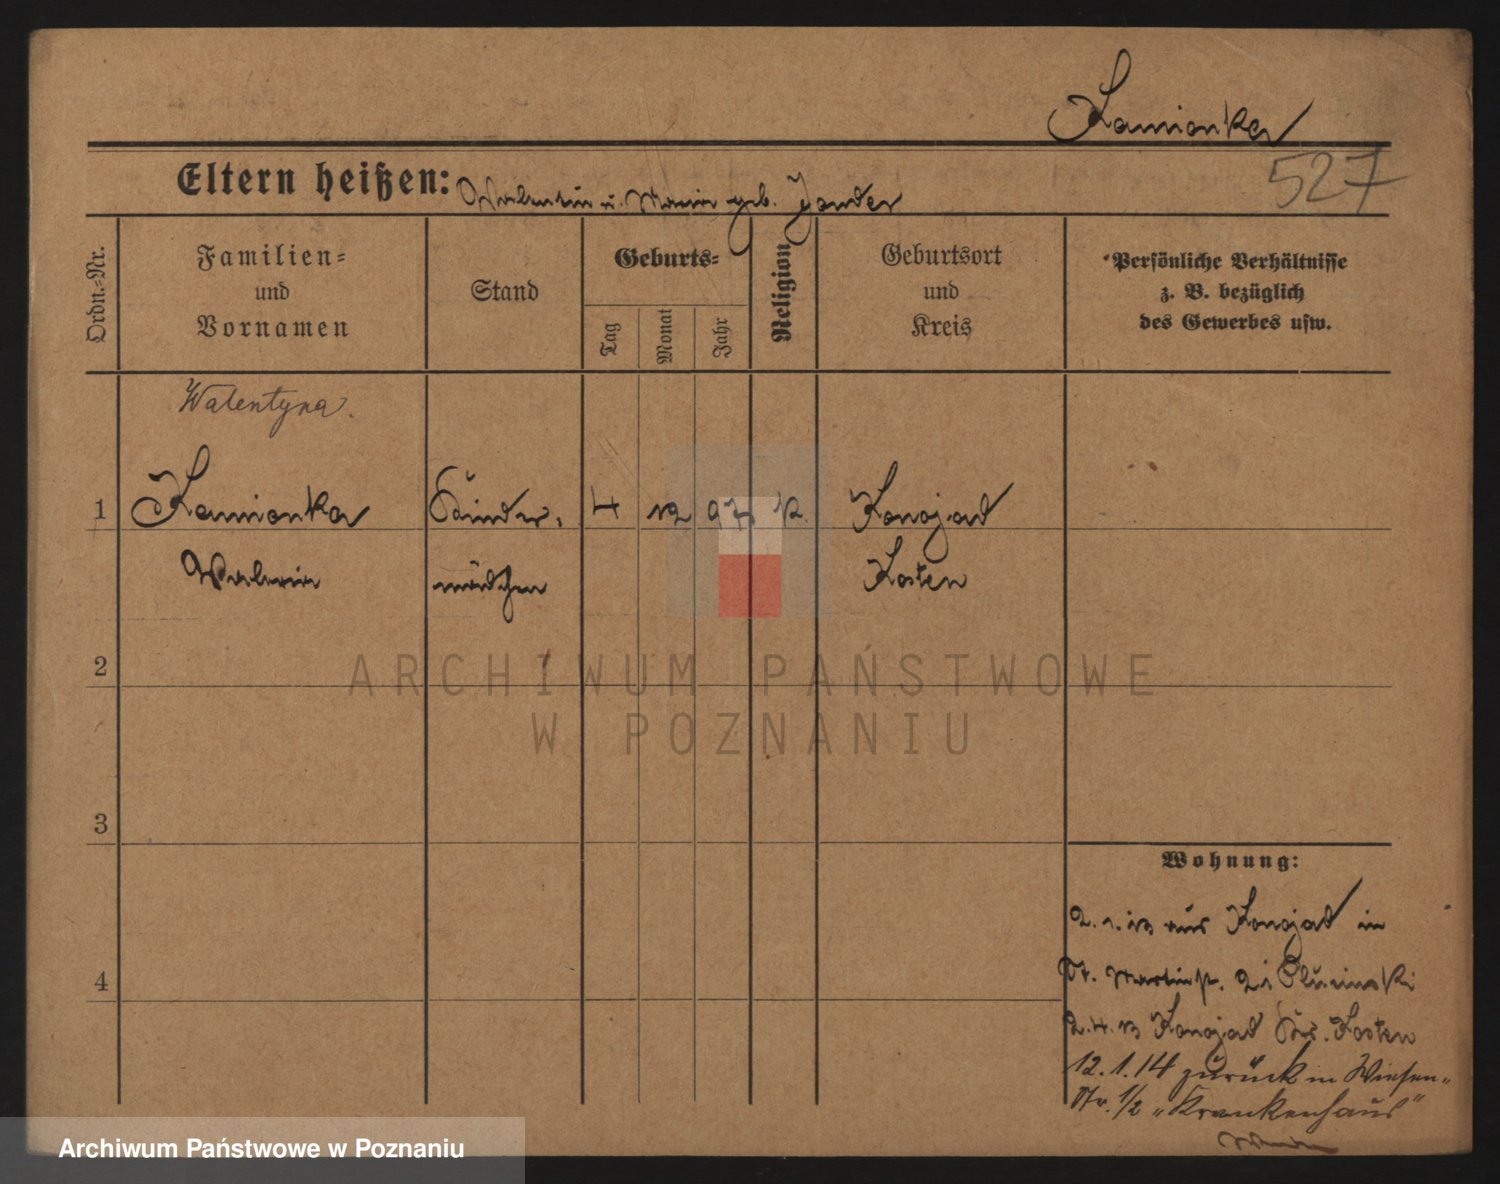 Kamionka
527
Eltern heißen: Valentin u. Maria geb. Jander
Ordn.-Nr.
Familien-
und
Vornamen
Stand
Geburts-
Tag
Monat
Jahr
Religion
Geburtsort
und
Kreis
Persönliche Verhältnisse
z. B. bezüglich
des Gewerbes usw.
Walentyna.
1 Kamionka Kinder- 4 12 97 k. Konojad
Valeria mädchen Kosten
2
ARCHIWUM PAŃSTWOWE
W POZNANIU
3
Wohnung:
2. 1. 13 aus Konojad in
St. Martinstr. 21
4
2. 4. 13 Konojad Krs. Kosten
12. 1. 14 zurück in Wiesen-
str. 1/2 „Krankenhaus"
Archiwum Państwowe w Poznaniu